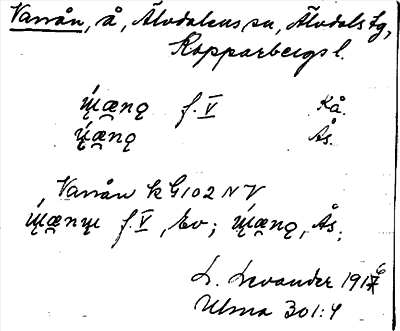 Varrån, å, Älvdalens sn, Älvdals tg,
Kopparbergs l.
f. V Kå.
Ås.
Varrån kG102 NV
f. V, Ev; Ås.
L. Levander 1916
Ulma 301:4